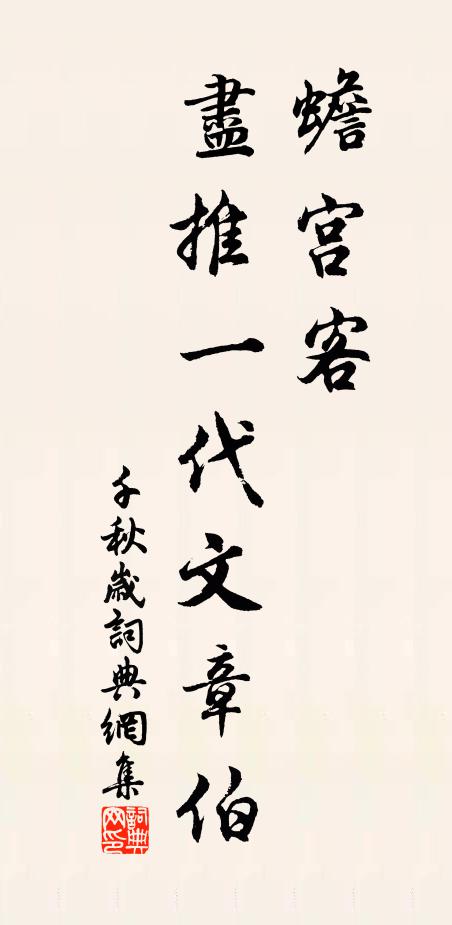 蟾宮客
盡推一代文章伯
千秋歲詞典網集
詞典網印